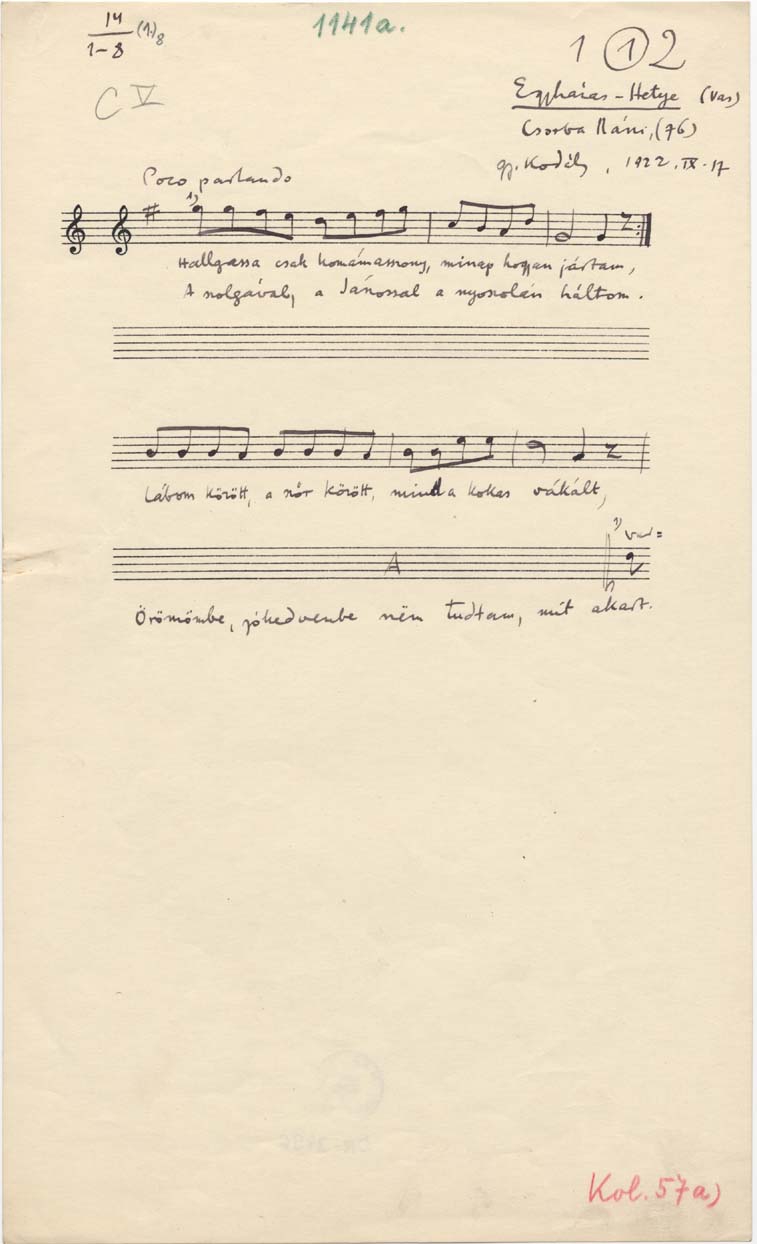 14
1–8 (1.)8
1141a.
1 ① 2
C V
Egyházas-Hetye (Vas)
Csorba Náni, (76)
gy. Kodály, 1922. IX. 17
Poco parlando
1)
Hallgassa csak komámasszony, minap hogyan jártam,
A szolgával, a Jánossal a nyoszolán háltom.
Lábom között, a szőr között, mind a kokas vákált,
1) var =
A
Örömömbe, jókedvembe nëm tudtam, mit akart.
Kol. 57a)